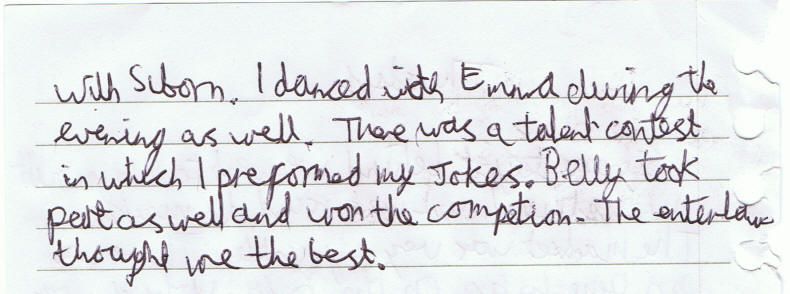 with Siborn. I danced with Emma during the
evening as well. There was a talent contest
in which I preformed my Jokes. Belly took
part as well and won the competion. The
thought we the best.